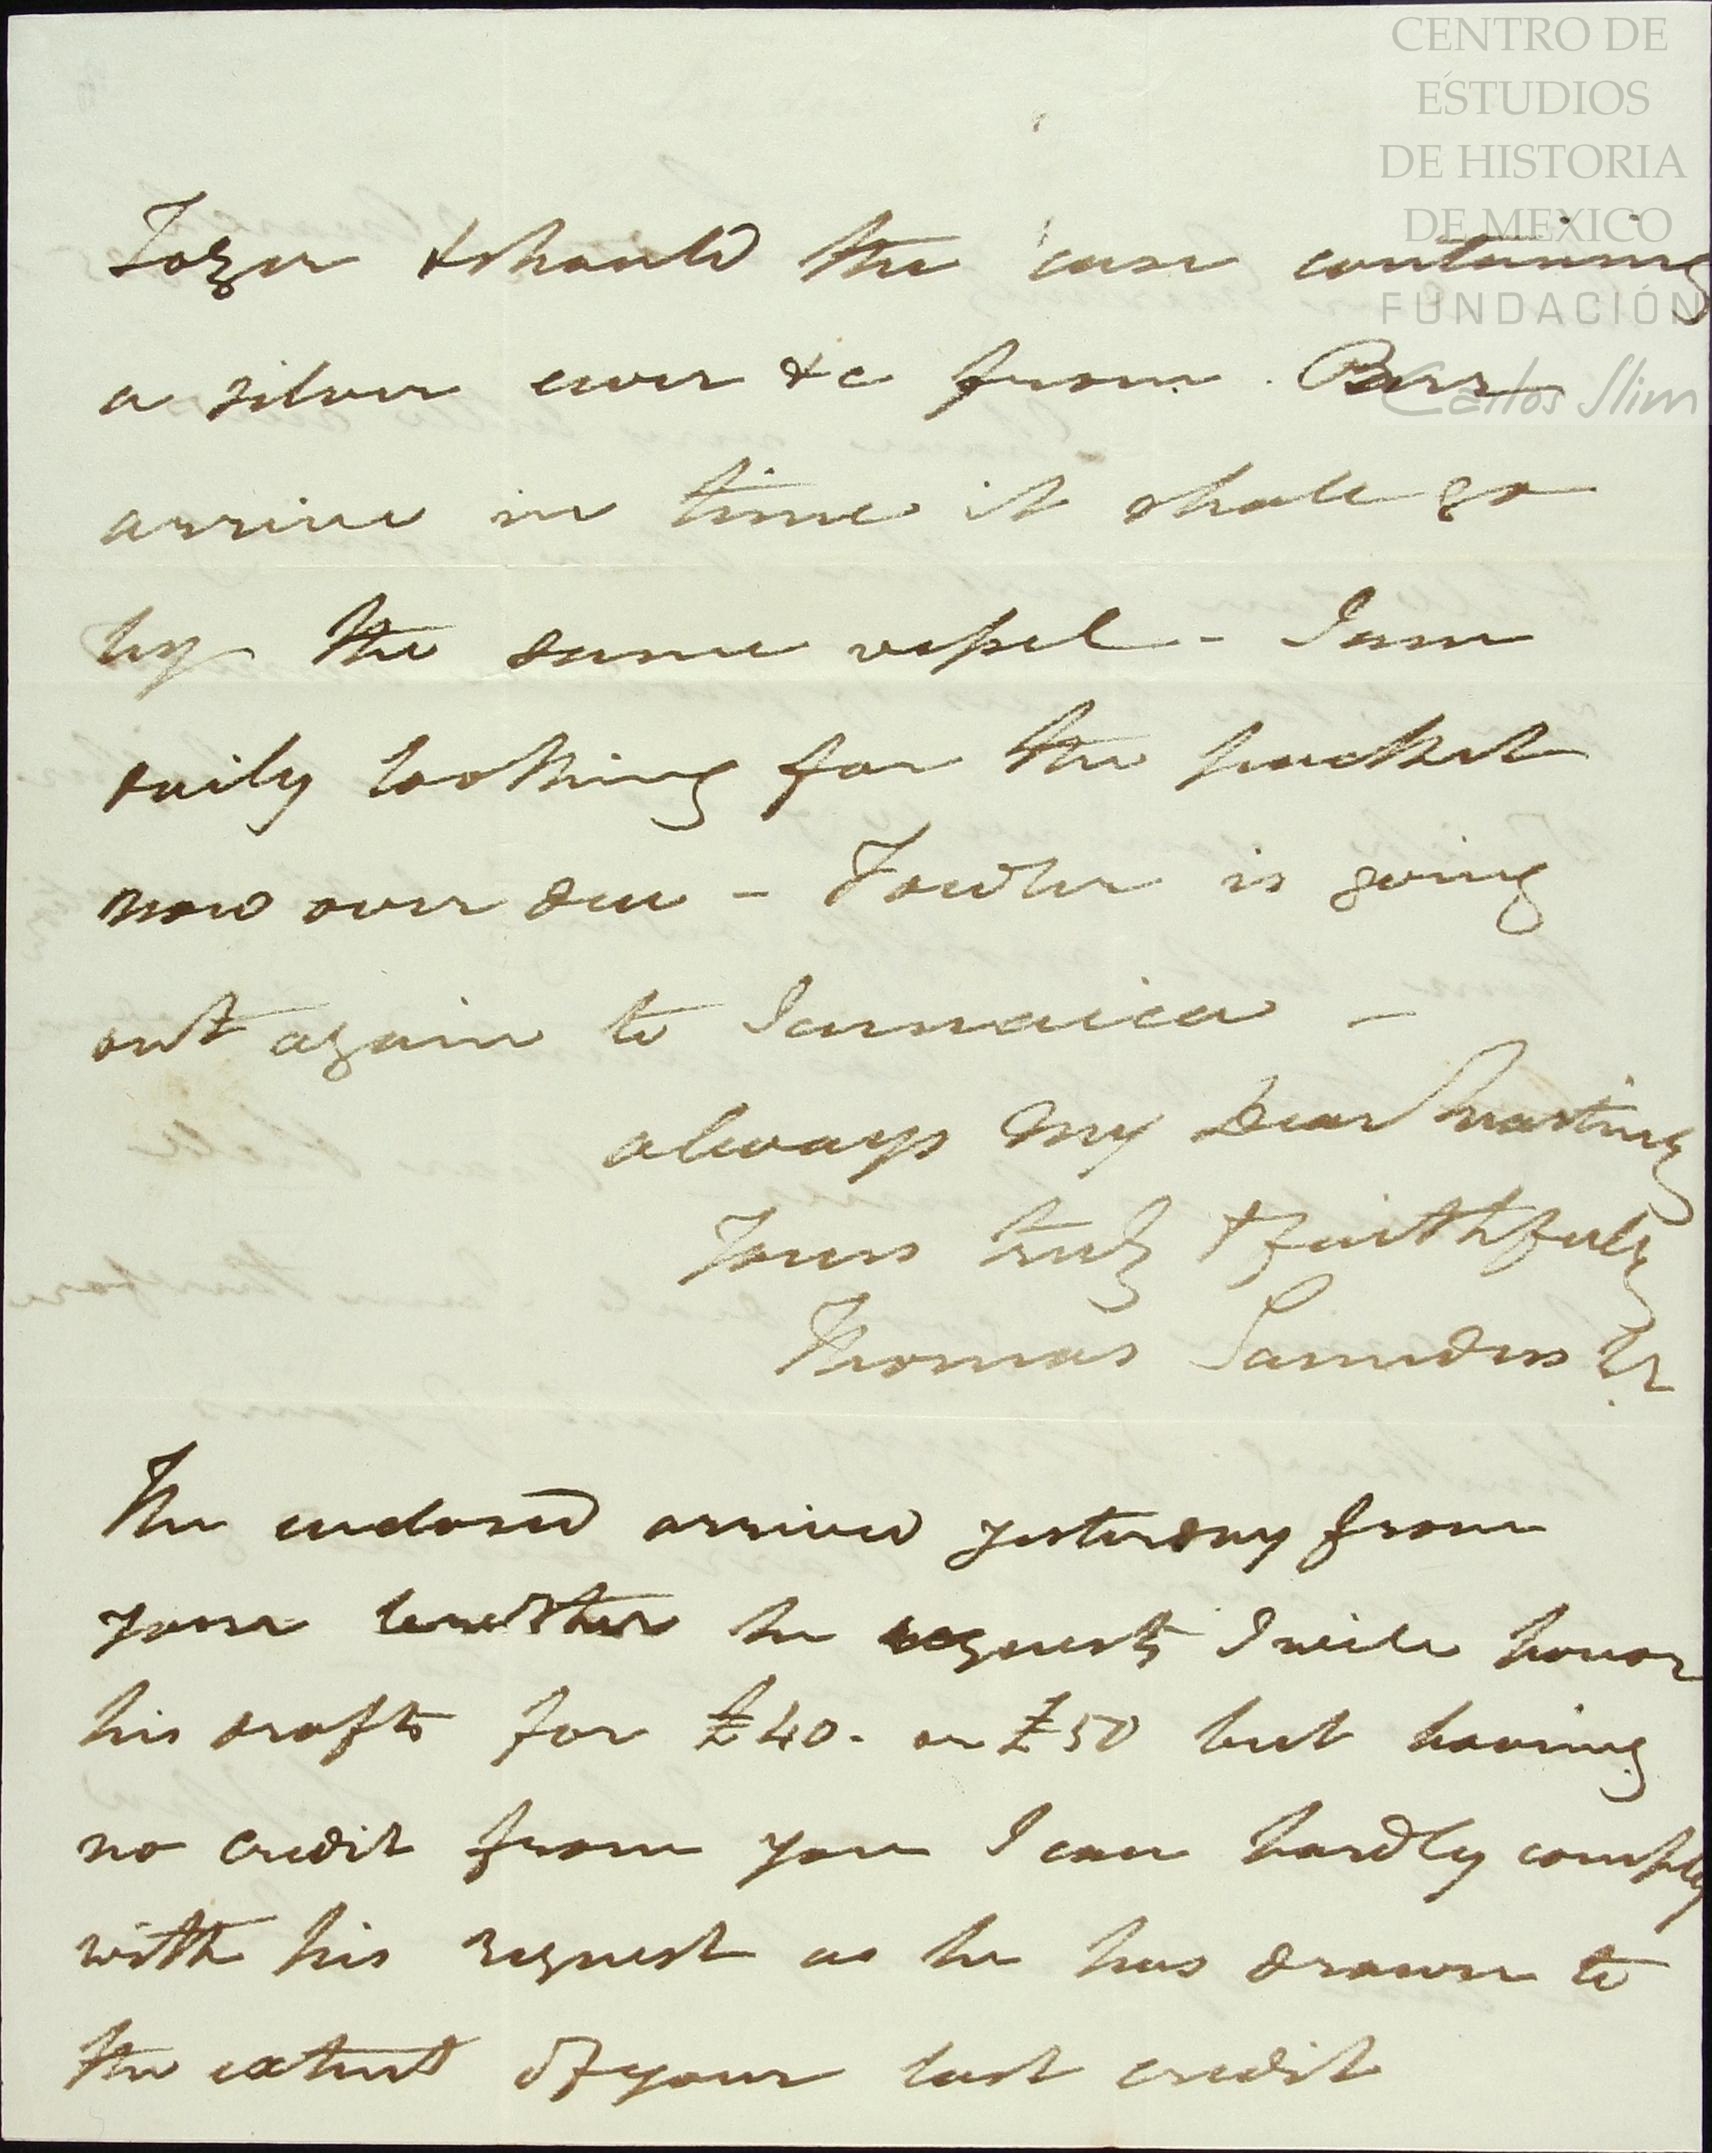 CENTRO DE
ESTUDIOS
DE HISTORIA
DE MEXICO
FUNDACIÓN
Carlos Slim
Tozer & should the case containing
a silver ewer &c from Parr
arrive in time it shall go
by the same vessel - I am
daily looking for the packet
now over due - Fowler is going
out again to Jamaica -
always my Dear Martinez
Yours truly & faithfully
Thomas Saunders Jr
The enclosed arrived yesterday from
your brother he requests I will honor
his drafts for £40. or £50 but having
no credit from you I can hardly comply
with his request as he has drawn to
the extent of your last credit